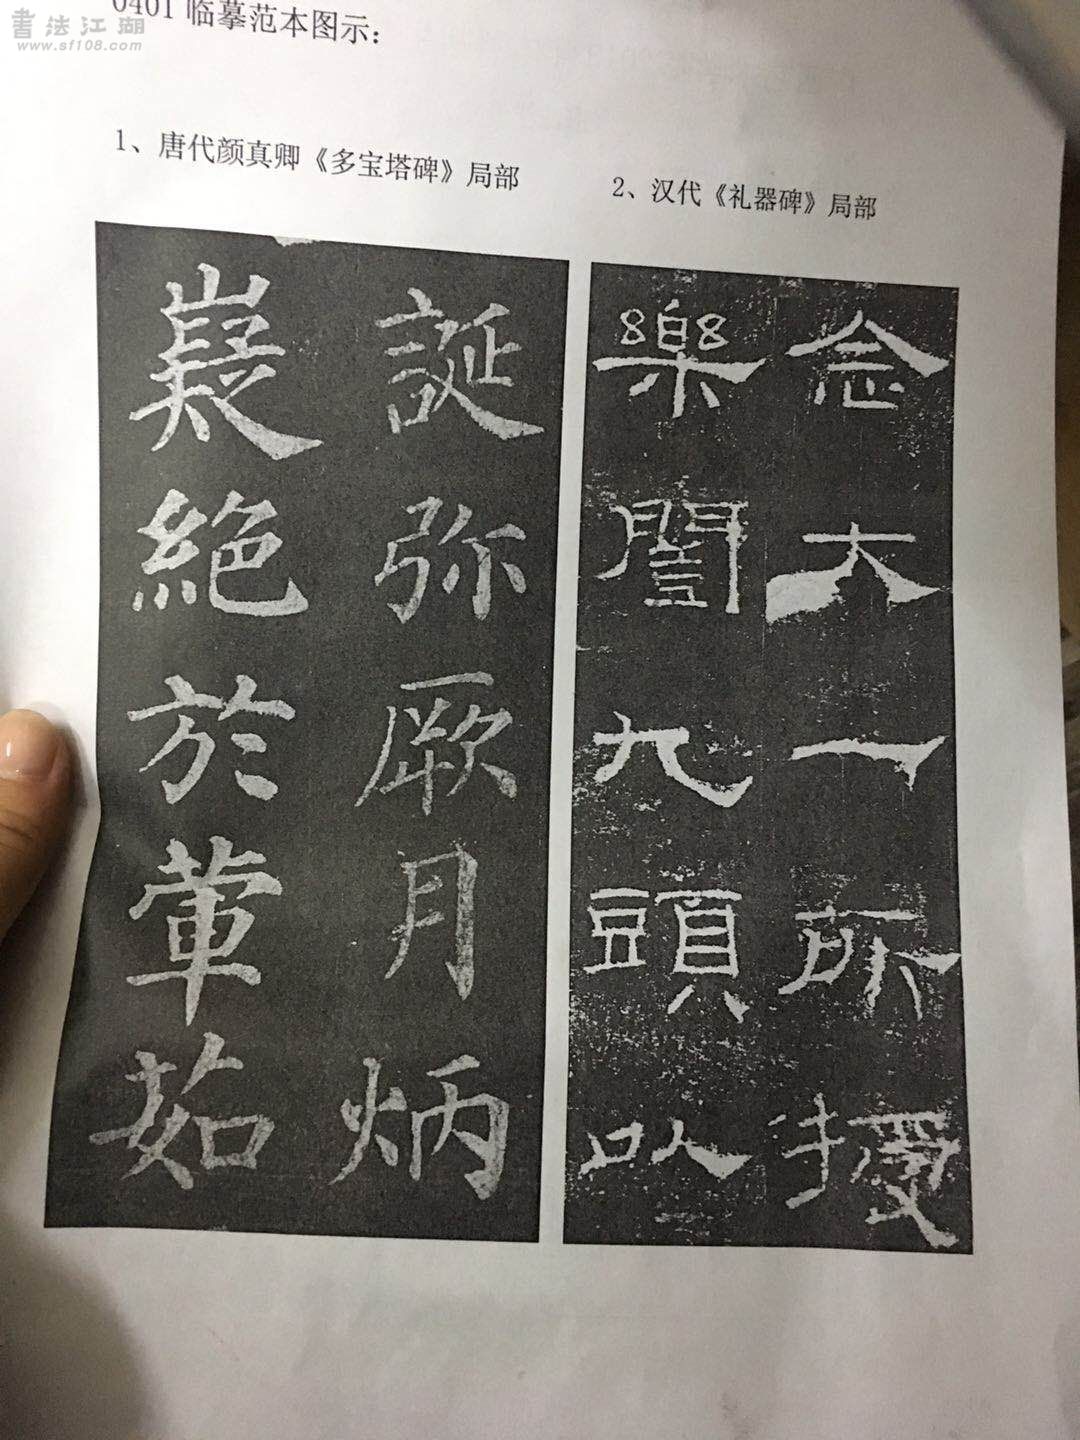 書法江湖
www.sf108.com
0401临摹范本图示：
1、唐代颜真卿《多宝塔碑》局部
2、汉代《礼器碑》局部
誕弥厥月炳
嶷絕於葷茹
念大一所授
樂闓九頭以